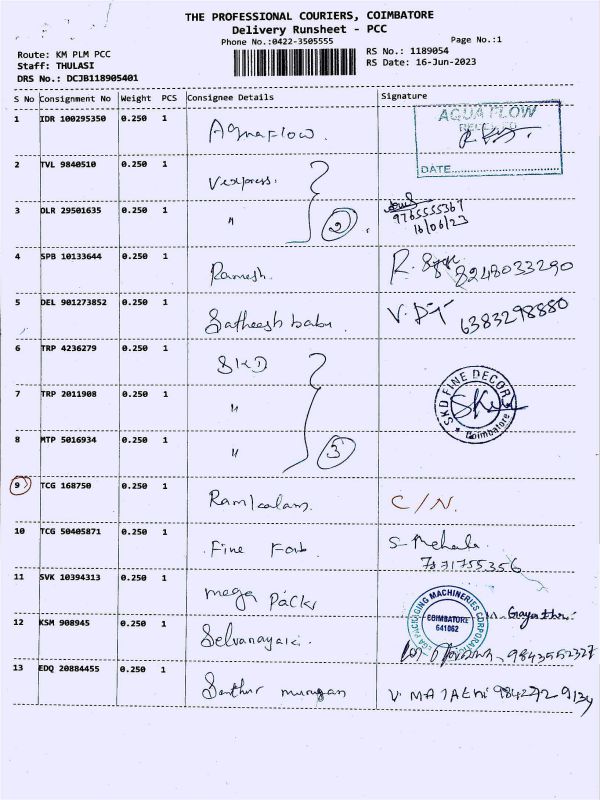 THE PROFESSIONAL COURIERS, COIMBATORE
Delivery Runsheet - PCC
Phone No.:0422-3505555 Page No.:1
Route: KM PLM PCC RS No.: 1189054
Staff: THULASI RS Date: 16-Jun-2023
DRS No.: DCJB118905401
S No Consignment No Weight PCS Consignee Details Signature
1 IDR 100295350 0.250 1 Aquaflow. AQUA FLOW
DATE
2 TVL 9840510 0.250 1 Vexpress.
3 DLR 29501635 0.250 1 " 2 9765555367
16/06/23
4 SPB 10133644 0.250 1 Ramesh. R. 8248033290
5 DEL 901273852 0.250 1 Satheesh babu. V. 6383298880
6 TRP 4236279 0.250 1 SKD
7 TRP 2011908 0.250 1 " SKD FINE DECOR Coimbatore
8 MTP 5016934 0.250 1 " 3
9 TCG 168750 0.250 1 Ramkalam. C/N.
10 TCG 50405871 0.250 1 Fine Fab S. Mehala.
7871755356
11 SVK 10394313 0.250 1 mega Packs PACKAGING MACHINERIES CORPORATION COIMBATORE 641062 Gayathri.
12 KSM 908945 0.250 1 Selvanayaki. 9843552327
13 EDQ 20884455 0.250 1 Santhur murugan V. MALATHI 984272 9134